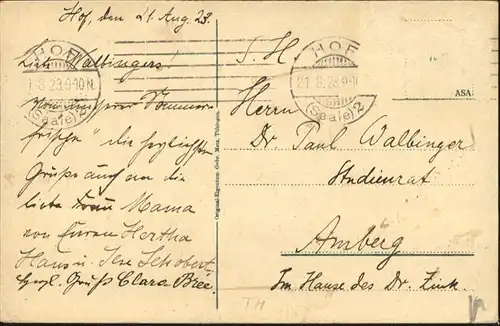 Hof, den 21. Aug. 23.
Liebe Walbingers!
Von unserer Sommer-
frische die herzlichsten
Grüsse auch an die
liebe Frau Mama
von Euren Hertha
Hans u. Ilse Schobert
Herzl. Gruß Clara Bree
HOF
21.8.23.9-10N.
(Saale) 2
HOF
21.8.23.9-10
(Saale) 2
ASA
S. H.
Herrn
Dr. Paul Walbinger
Studienrat
Amberg
Im Hause des Dr. Zink.
Original-Eigentum Gebr. Metz, Tübingen.
TM